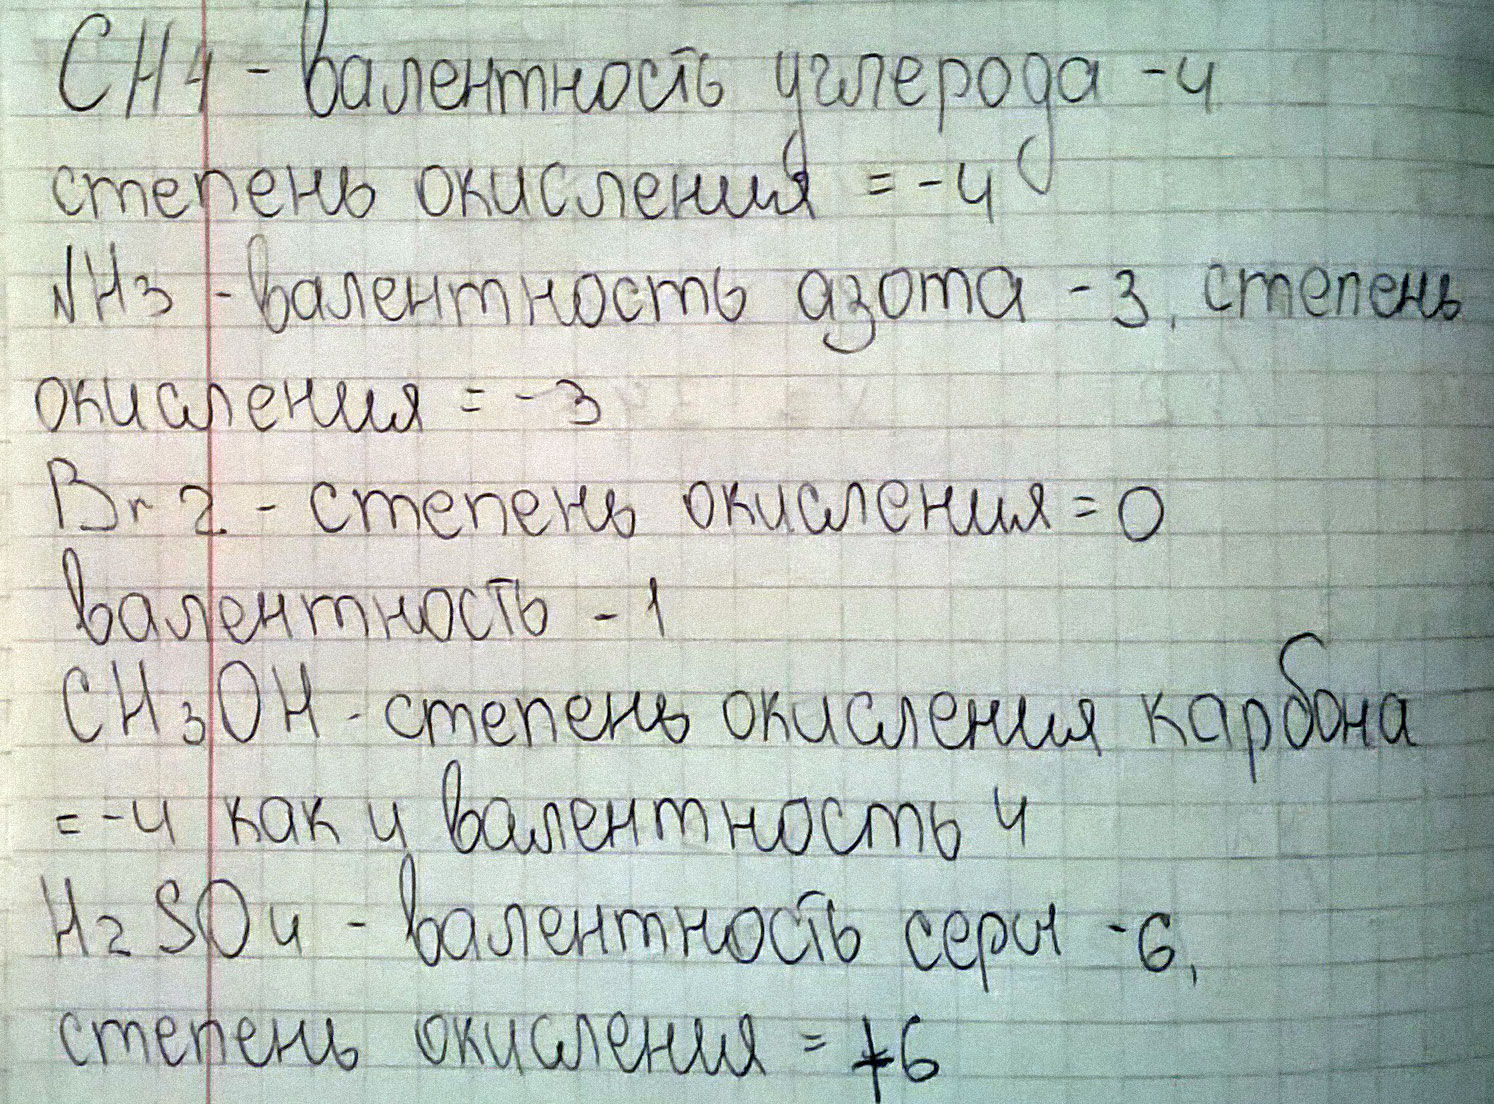 CH4 - валентность углерода - 4
степень окисления = -4
NH3 - валентность азота - 3, степень
окисления = -3
Br2 - степень окисления = 0
валентность - 1
CH3OH - степень окисления карбона
= -4 как и валентность 4
H2SO4 - валентность серы - 6,
степень окисления = +6